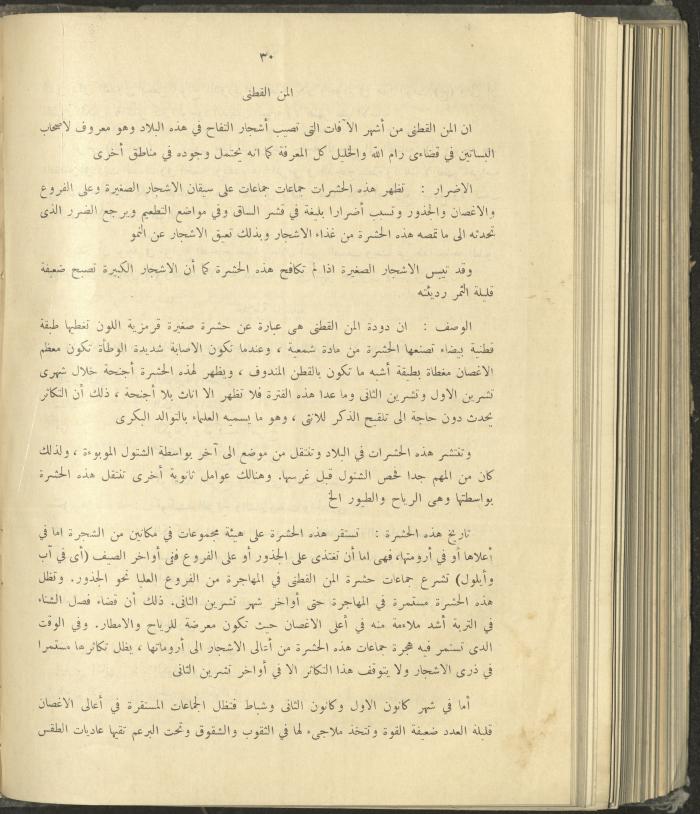 ٣٠
المن القطنى
ان المن القطنى من أشهر الآفات التى تصيب أشجار التفاح في هذه البلاد وهو معروف لاصحاب
البساتين في قضاءى رام الله والخليل كل المعرفة كما انه يحتمل وجوده في مناطق أخرى
الاضرار : تظهر هذه الحشرات جماعات جماعات على سيقان الاشجار الصغيرة وعلى الفروع
والاغصان والجذور وتسبب أضرارا بليغة في قشر الساق وفي مواضع التطعيم ويرجع الضرر الذى
تحدثه الى ما تمصه هذه الحشرة من غذاء الاشجار وبذلك تعيق الاشجار عن النمو
وقد تيبس الاشجار الصغيرة اذا لم تكافح هذه الحشرة كما أن الاشجار الكبيرة تصبح ضعيفة
قليلة الثمر رديئته
الوصف : ان دودة المن القطنى هى عبارة عن حشرة صغيرة قرمزية اللون تغطيها طبقة
قطنية بيضاء تصنعها الحشرة من مادة شمعية ، وعندما تكون الاصابة شديدة الوطأة تكون معظم
الاغصان مغطاة بطبقة أشبه ما تكون بالقطن المندوف ، ويظهر لهذه الحشرة أجنحة خلال شهرى
تشرين الاول وتشرين الثانى وما عدا هذه الفترة فلا تظهر الا اناث بلا أجنحة ، ذلك أن التكاثر
يحدث دون حاجة الى تلقيح الذكر للانثى ، وهو ما يسميه العلماء بالتوالد البكرى
وتنتشر هذه الحشرات في البلاد وتنتقل من موضع الى آخر بواسطة الشتول الموبوءة ، ولذلك
كان من المهم جدا فحص الشتول قبل غرسها. وهنالك عوامل ثانوية أخرى تنتقل هذه الحشرة
بواسطتها وهى الرياح والطيور الخ
تاريخ هذه الحشرة : تستقر هذه الحشرة على هيئة مجموعات في مكانين من الشجرة اما في
أعلاها أو في أرومتها، فهى اما أن تغتذى على الجذور أو على الفروع فنى أواخر الصيف (أى في آب
وأيلول) تشرع جماعات حشرة المن القطنى في المهاجرة من الفروع العليا نحو الجذور. وتظل
هذه الحشرة مستمرة في المهاجرة حتى أواخر شهر تشرين الثانى. ذلك أن قضاء فصل الشتاء
في التربة أشد ملاءمة منه في أعلى الاغصان حيث تكون معرضة للرياح والامطار. وفي الوقت
الذى تستمر فيه هجرة جماعات هذه الحشرة من أعالى الاشجار الى أروماتها، يظل تكاثرها مستمرا
في ذرى الاشجار ولا يتوقف هذا التكاثر الا في أواخر تشرين الثانى
أما في شهر كانون الاول وكانون الثانى وشباط فتظل الجماعات المستقرة في أعالى الاغصان
قليلة العدد ضعيفة القوة وتتخذ ملاجىء لها في الثقوب والشقوق وتحت البرعم تقيها عاديات الطقس